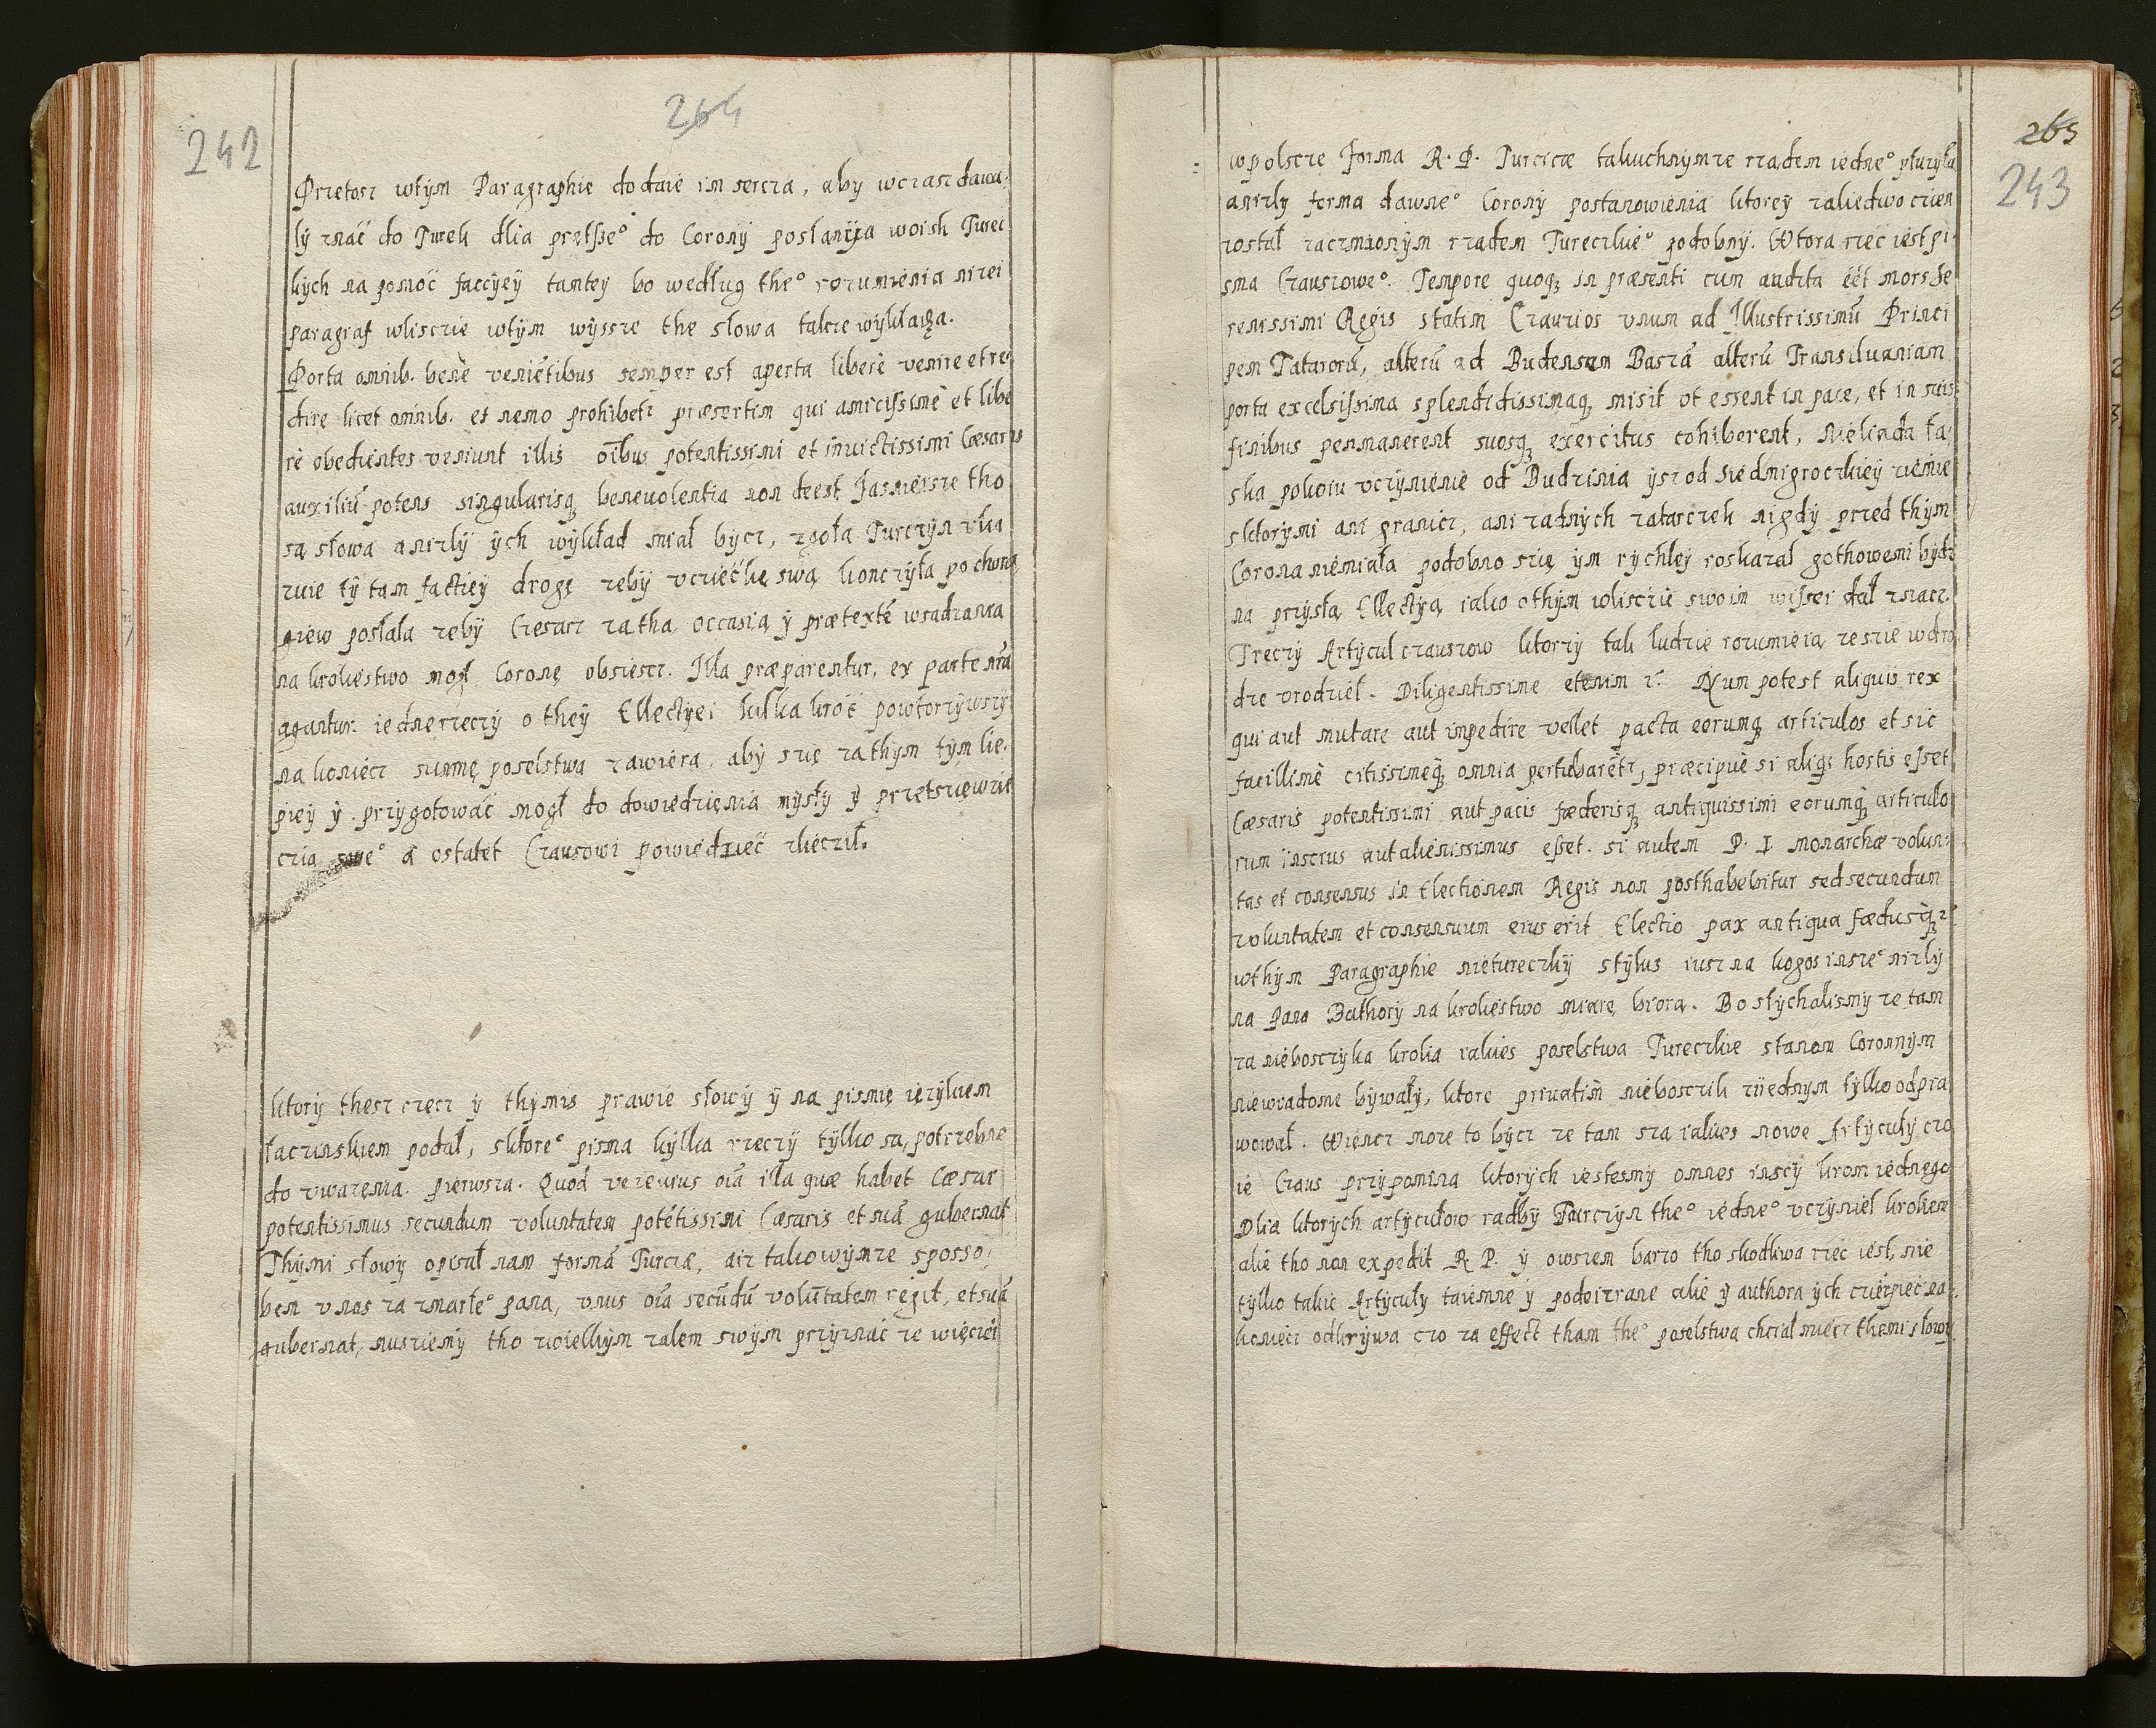 242
264
Przetosz wtÿm Paragraphie dodaie im sercza, aby wczasz dawa-
lÿ znać do Turek dlia prętsze° do Coronÿ posłanÿa woisk Turec
kÿch na pomóć faccÿeÿ tamteÿ bo według the° rozumienia nizei
paragraf wliscie wtÿm wÿssze the słowa takze wÿkłada.
Porta omnib. benè veniētibus semper est aperta liberè venire et re-
dire licet omnib. et nemo prohibetr præsertim qui amicissimè et libe
rè obedientes veniunt illis oībus potentissimi et inuictissimi Cæsaris
auxiliū potens singularisq benevolentia non deest. Jasnieisze tho
są słowa anizlÿ ÿch wÿkład miał bycz, zgoła Turczÿn vka
zuie tÿ tam factieÿ drogę zebÿ vcziećkę swą konczÿła po chwrą
giew posłała zebÿ Cesarz za tha occasią ÿ prætextē wsadzania
na krolestwo mogł Coronę obsiescz. Illa præparentur, ex parte nrā
agantur. iedne rzeczÿ o theÿ Ellectÿei kilka króć powtorzÿwszÿ
na koniecz summę poselstwa zawiera, abÿ się za thÿm tÿm lie-
pieÿ ÿ przÿgotować mogł do dowiedzięnia mÿsly ÿ przetsięwzię
cia swe° a ostatek Czausowi powiedzieć zliecził.
ktorÿ thesz rzecz ÿ thÿmis prawie słowÿ ÿ na pismię ięzÿkiem
łaczinskiem podał, sktore° pisma kÿlka rzeczÿ tÿlko są potrzebne
do vwazęnia. pierwsza. Quod vereurus oīa illa quæ habet Cæsar
potentissimus secundum voluntatem potētissimi Cæsaris et suā gubernat
Thÿmi słowÿ opisał nam formā Turciæ, asz takowÿmze sposso,
bem vnas za zmarłe° pana, vnus oīa secūdū volūtatem regit, et suā
gubernat, musziemÿ tho zwielkÿm zalem swÿm przÿznać ze więczei
265
243
wpolscze forma R. P. Turcicæ takuchnÿmze rzadem iedne° płuzÿła
anizly forma dawne° Coronÿ postanowienia ktoreÿ zaliedwo czien
został zaczmionÿm rzadem Tureczkie° podobnÿ. Wtora rzeć iest pi-
sma Czausowe°. Tempore quoq in præsenti cum audita eēt mors se
renissimi Regis statim Czaurios vnum ad Illustrissimū Princi
pem Tatarorū, alterū ad Budensem Baszā alterū Transiluaniam
porta excelsissima splendidissimaq misit vt essent in pace, et in suis
finibus permanerent suosq exercitus cohiberent, Nieliada ta-
ska pokoiu vczÿnienie od Budzinia ÿsz od siedmigroczkieÿ ziemie
sktorÿmi ani granicz, ani zadnÿch zatarczek nigdÿ przed thÿm
Corona niemiała podobno szię ÿm rÿchleÿ roskazał gothowemi bÿdz
na przÿsłą Ellectÿą iako othÿm wliscie swoim wiszei dał znacz.
Trzeczÿ Artÿcul czauszow ktorzÿ tak ludzie rozumieią ze szie wdro
dze vrodziel. Diligentissime etenim zc. Num potest aliquis rex
qui aut mutare aut impedire vellet pacta eorumq articulos et sic
facillimè citissimeq omnia perturbarētr, præcipuè si aliqs hostis esset
Cæsaris potentissimi aut pacis fæderisq antiquissimi eorumq articulo
rum inscius aut alienissimus esset. si autem P. I monarchæ volun-
tas et consensus in Electionem Regis non posthabebitur sed secundum
voluntatem et consensum eius erit Electio pax antiqua fædusq zc
wthÿm Paragraphie nietureczkÿ stÿlus iusz na kogos insze° nizlÿ
na Pana Bathorÿ na krolestwo miarę biorą. Bo slÿchalismÿ ze tam
za nieboszczÿka krolia iakies poselstwa Tureczkie stanom Coronnÿm
niewiadome bÿwałÿ, ktore priuatim nieboszczik ziednym tÿlko odpra
wował. Wiencz moze to bÿcz ze tam sza iakies nowe Artÿculÿ czo
ie Czaus przÿpomina ktorÿch iestesmÿ omnes inscÿ krom iednego
Dlia ktorÿch artÿcułow radbÿ Turczÿn the° iedne° vczÿnieł kroliem
alie tho non expedit R P. ÿ owszem barzo tho skodliwa rzeć iest, nie
tÿlko takie Artÿculÿ taiemne ÿ podeizrane alie ÿ authora ÿch czierpieć na-
koniecz odkrÿwa czo za effect tham the° poselstwa chciał miecz themi słowÿ